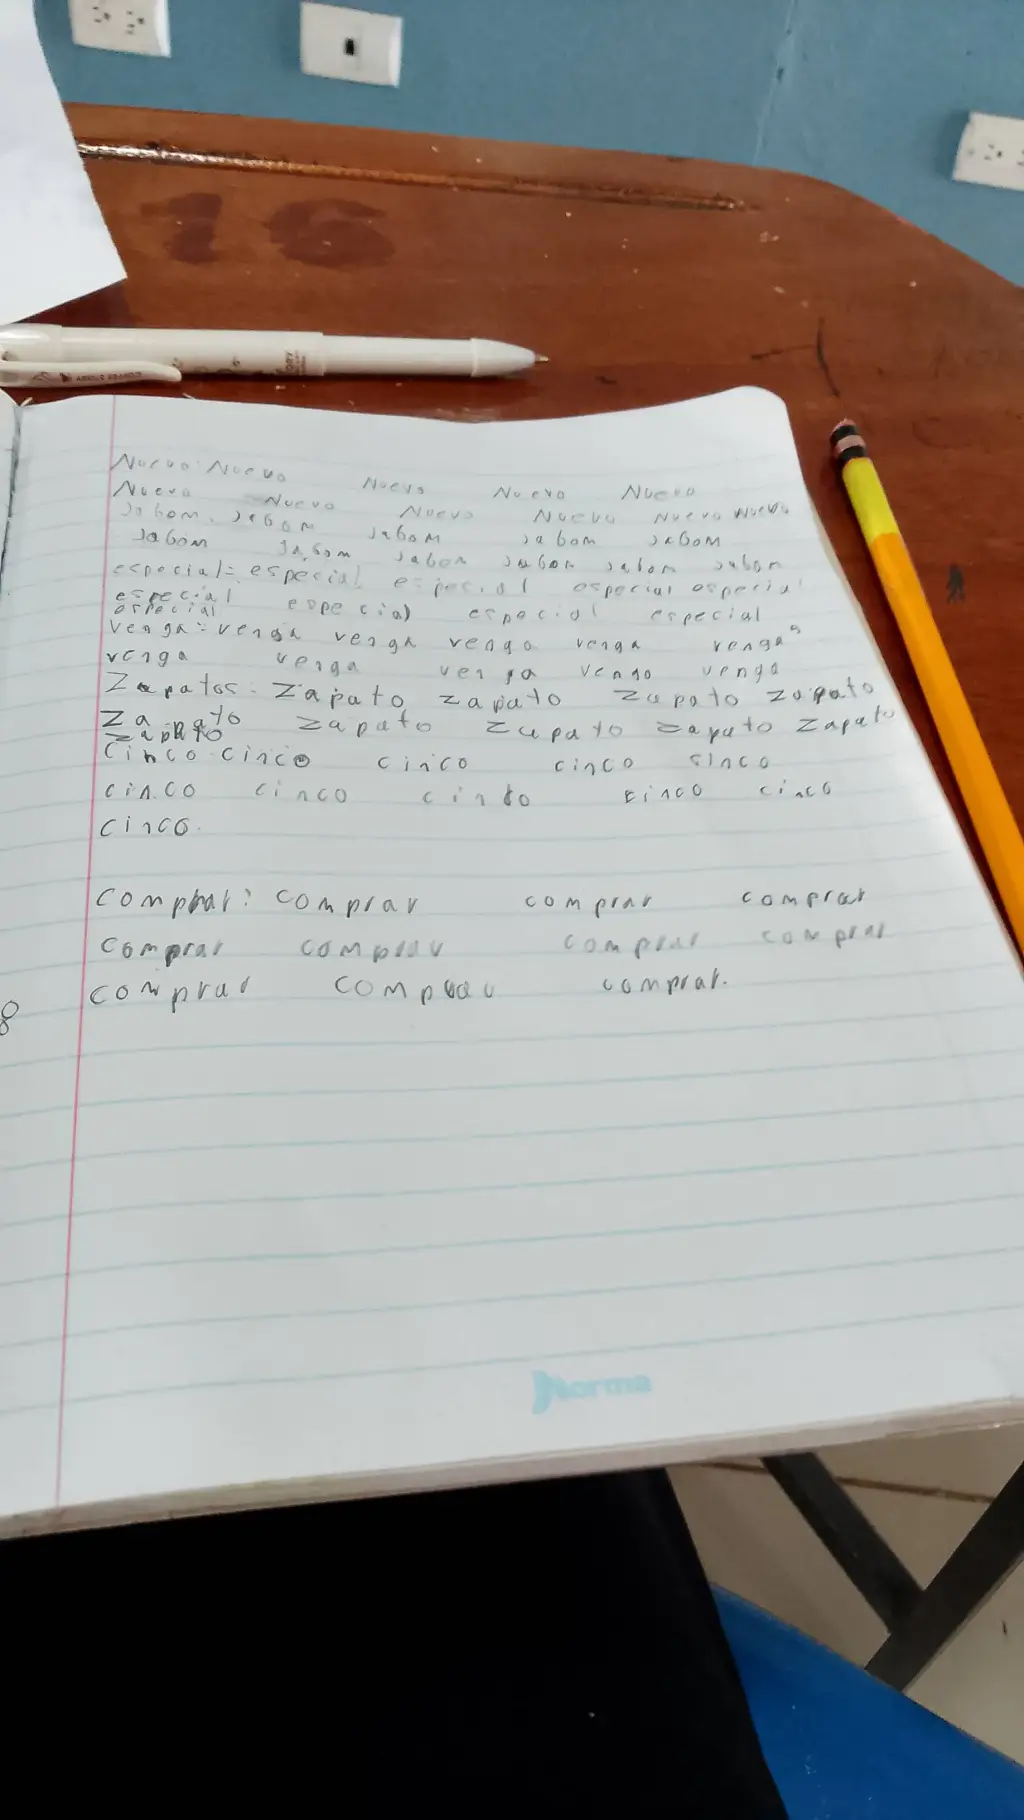 16
Nuevo: Nuevo Nuevo Nuevo Nuevo
Nuevo Nuevo Nuevo Nuevo Nuevo Nuevo
Jabom. Jabom Jabom Jabom Jabom
Jabom Jabom Jabom Jabom Jabom Jabom
especial= especial especial especial especial
especial especial especial especial
especial
venga= venga venga venga venga venga
venga venga venga venga venga
Zapatos: Zapato zapato zapato zapato
Zapato zapato zapato zapato zapato
zapato
Cinco cinco cinco cinco cinco
cinco cinco cinco cinco cinco
cinco.
comprar: comprar comprar comprar
comprar comprar comprar comprar
comprar comprar comprar.
8
Norma